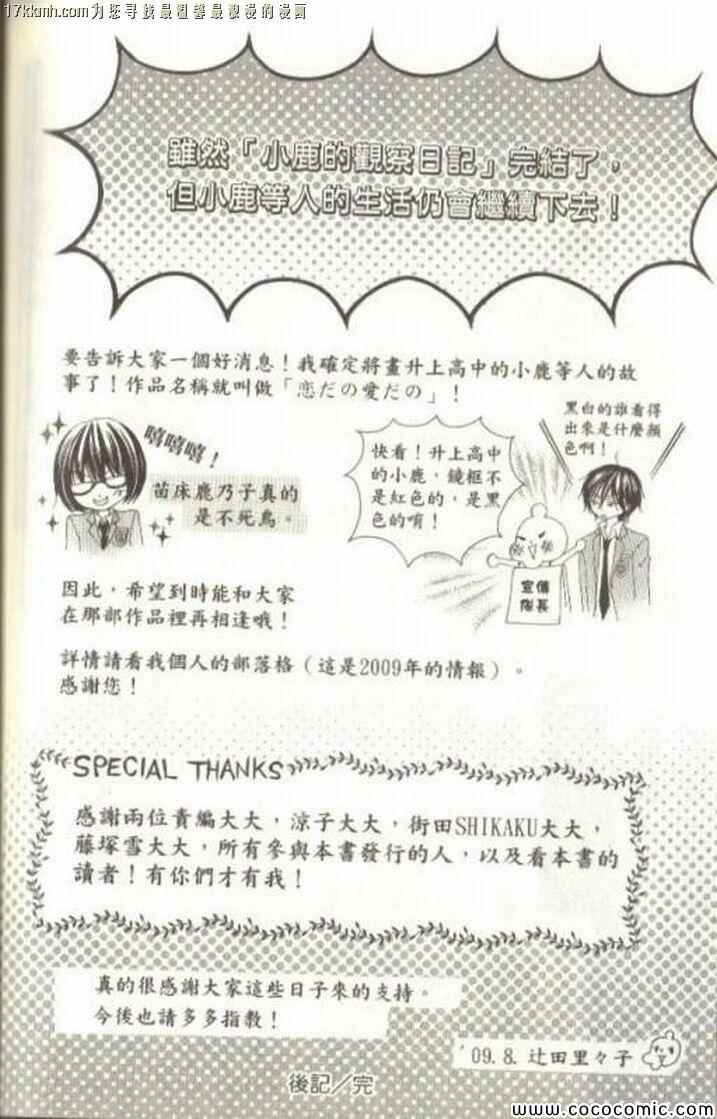 17kkmh.com为您寻找最温馨最浪漫的漫画
雖然「小鹿的觀察日記」完結了，
但小鹿等人的生活仍會繼續下去！
要告訴大家一個好消息！我確定將畫升上高中的小鹿等人的故
事了！作品名稱就叫做「恋だの愛だの」！
嘻嘻嘻！
苗床鹿乃子真的
是不死鳥。
快看！升上高中
的小鹿，鏡框不
是紅色的，是黑
色的唷！
黑白的誰看得
出來是什麼顏
色啊！
宣傳
隊長
因此，希望到時能和大家
在那部作品裡再相逢哦！
詳情請看我個人的部落格（這是2009年的情報）。
感謝您！
SPECIAL THANKS
感謝兩位責編大大，涼子大大，街田SHIKAKU大大，
藤塚雪大大，所有參與本書發行的人，以及看本書的
讀者！有你們才有我！
真的很感謝大家這些日子來的支持。
今後也請多多指教！
'09.8.辻田里々子
後記／完
WWW.COCOCOMIC.COM